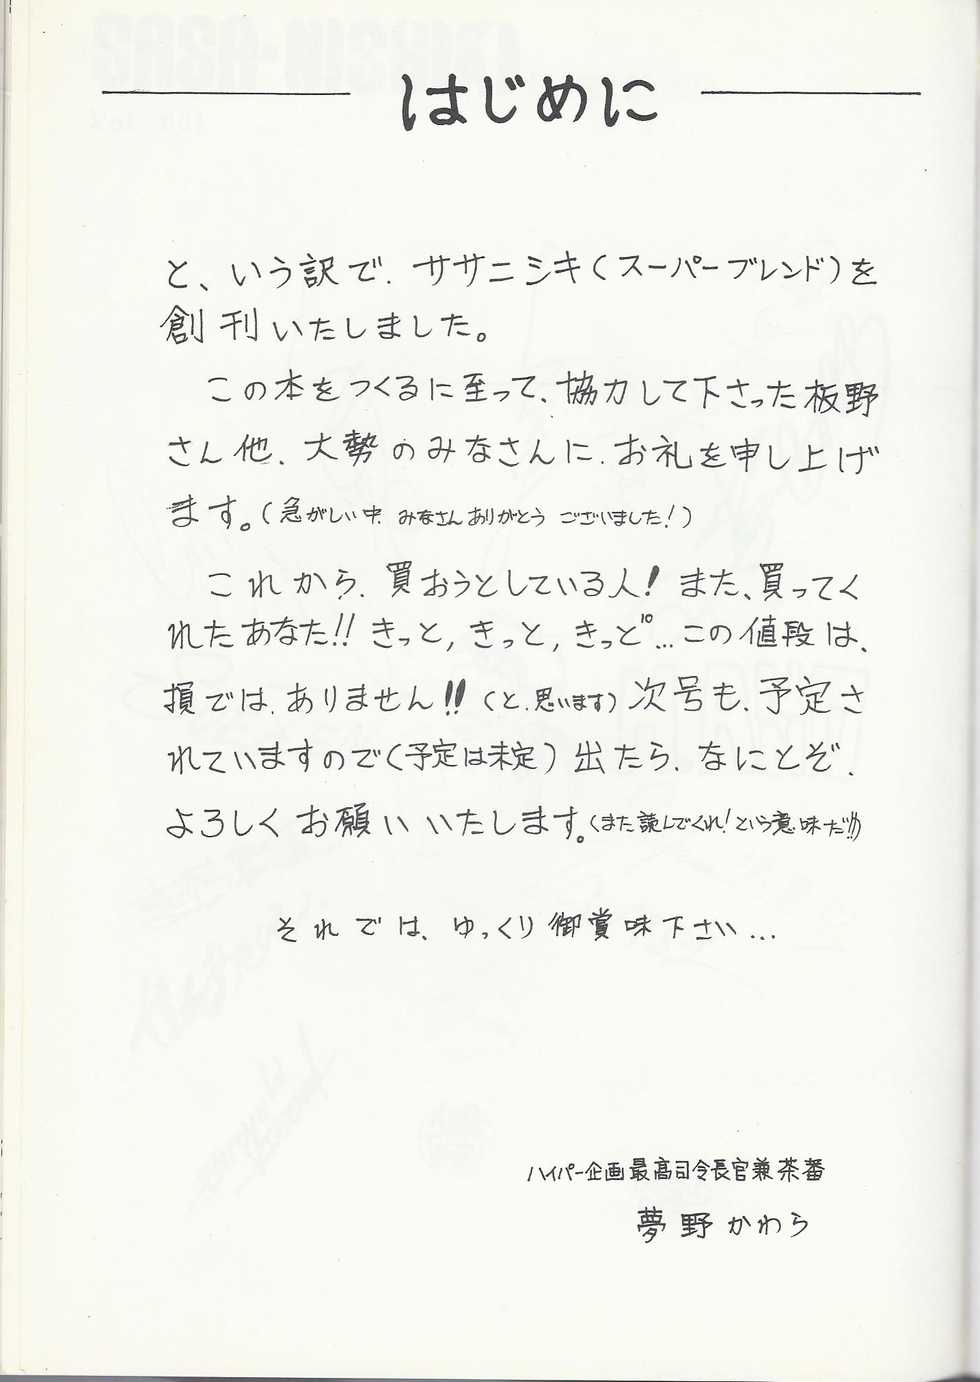 はじめに
と、いう訳で、ササニシキ(スーパーブレンド)を
創刊いたしました。
この本をつくるに至って、協力して下さった板野
さん他、大勢のみなさんに、お礼を申し上げ
ます。(急がしい中、みなさんありがとうございました!)
これから、買おうとしている人!また、買ってく
れたあなた!!きっと,きっと,きっと…この値段は、
損では、ありません!!(と、思います)次号も、予定さ
れていますので(予定は未定)出たら、なにとぞ、
よろしくお願いいたします。(また読んでくれ!という意味だ!!)
それでは、ゆっくり御賞味下さい...
ハイパー企画最高司令長官兼茶番
夢野かわら